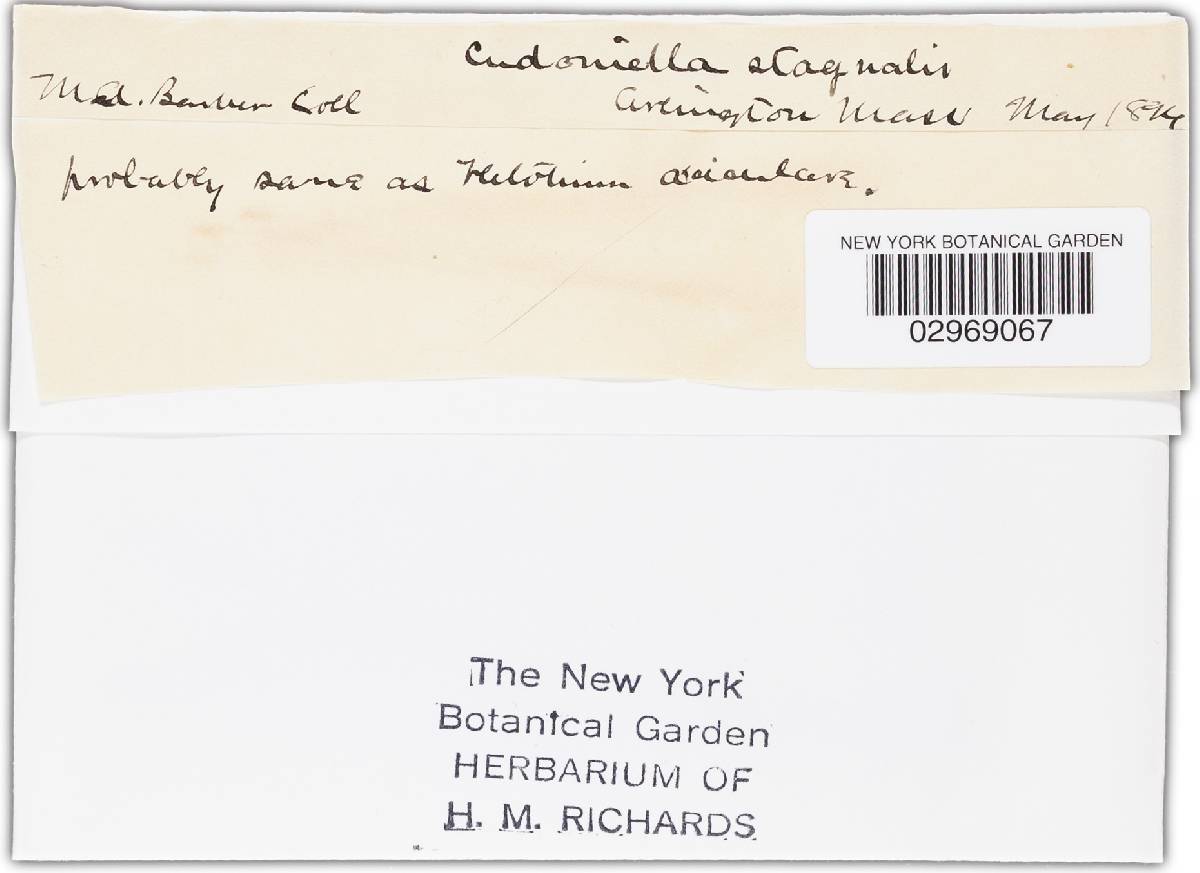 Cudoniella stagnalis
Barber Coll
Arlington Mass May 1894
probably same as Helotium aciculare.
NEW YORK BOTANICAL GARDEN
02969067
The New York
Botanical Garden
HERBARIUM OF
H. M. RICHARDS